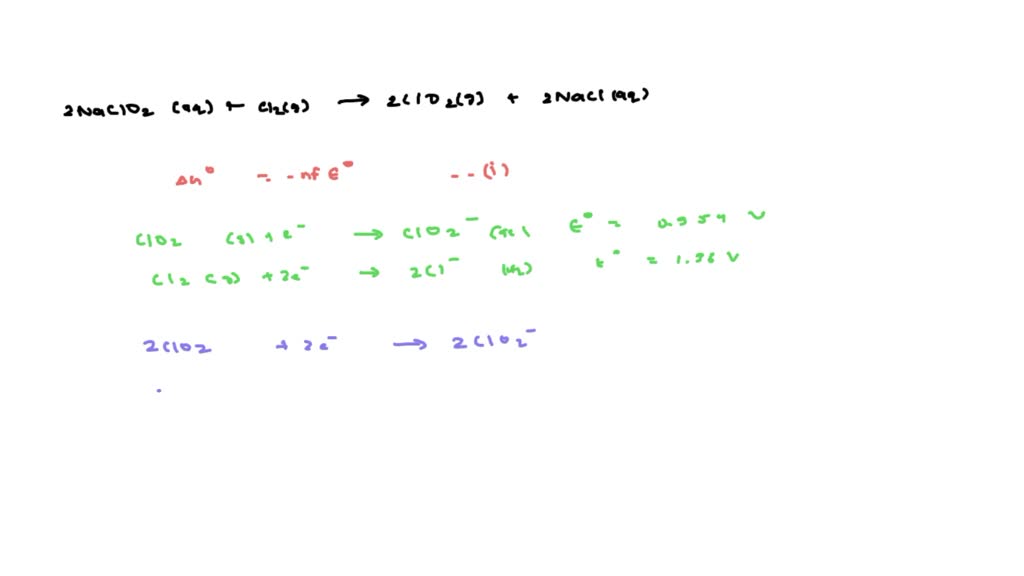 2NaClO2 (aq) + Cl2(g) → 2ClO2(g) + 2NaCl (aq)
ΔG° = -nf E° -- (i)
ClO2 (g) + e⁻ → ClO2⁻ (aq) E° = 0.954 V
Cl2 (g) + 2e⁻ → 2Cl⁻ (aq) E° = 1.36 V
2ClO2 + 2e⁻ → 2ClO2⁻